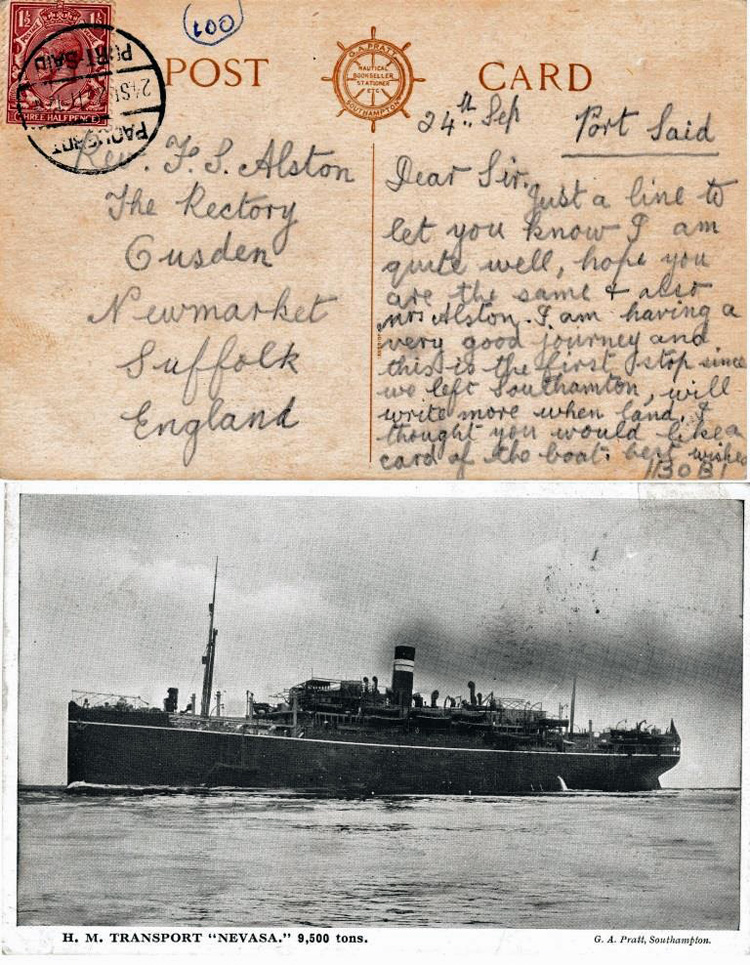 1½ 1½
POSTAGE REVENUE
THREE HALFPENCE
PORT-SAID
PAQUEBOT
100
POST CARD
G. A. PRATT
NAUTICAL
BOOKSELLER
STATIONER
ETC
SOUTHAMPTON
Rev. F. S. Alston
The Rectory
Cusden
Newmarket
Suffolk
England
24th Sep Port Said
Dear Sir,
Just a line to
let you know I am
quite well, hope you
are the same & also
mrs Alston. I am having a
very good journey and
this is the first stop since
we left Southamton, will
write more when land. I
thought you would like a
card of the boat. best wishes
H. M. TRANSPORT “NEVASA.” 9,500 tons.
G. A. Pratt, Southampton.